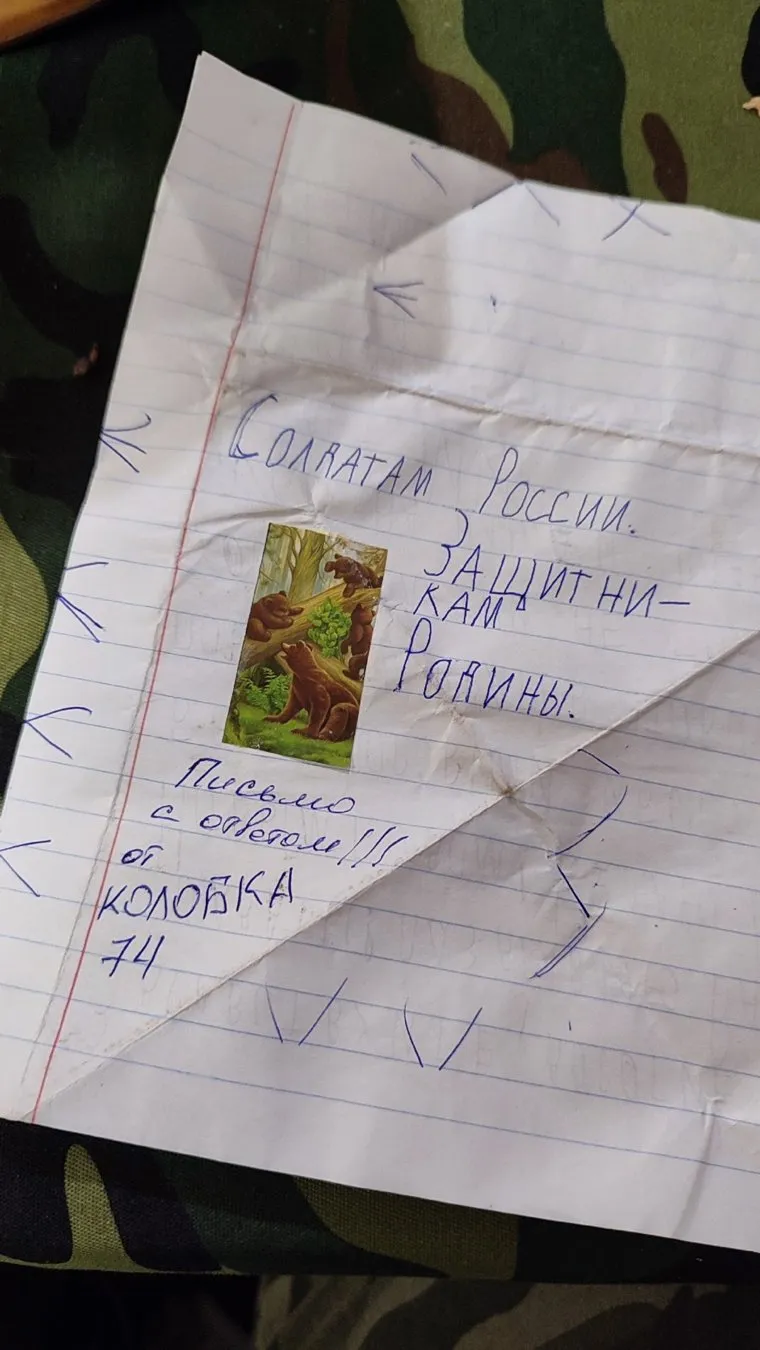 Солдатам России.
Защитни-
кам
Родины.
Письмо
с ответом!!!
от
КОЛОБКА
74